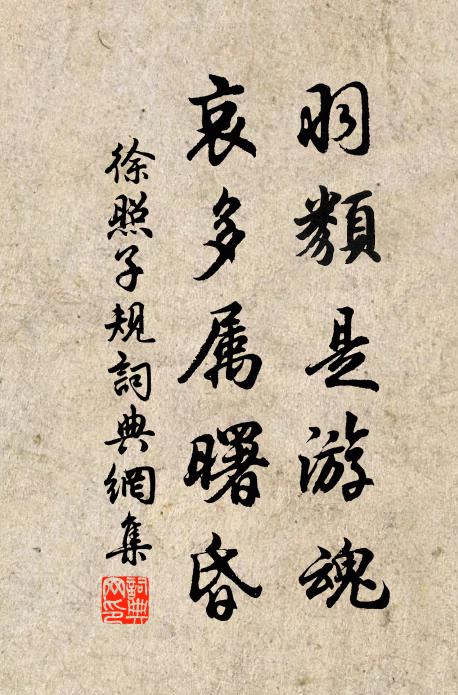 羽類是游魂
哀多属曙昏
徐照子規詞典網集
詞典網印